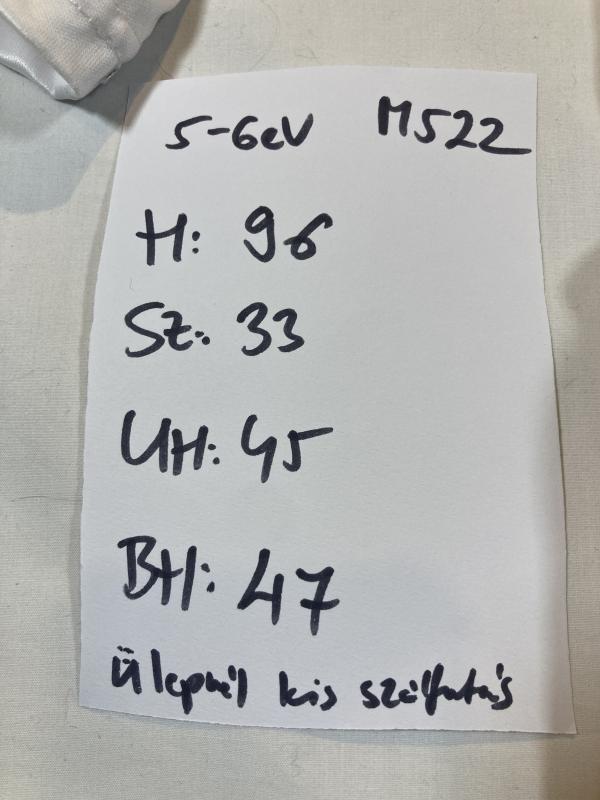 5-6 eV M522
H: 96
Sz: 33
UH: 45
BH: 47
Ülepnél kis szálfutás